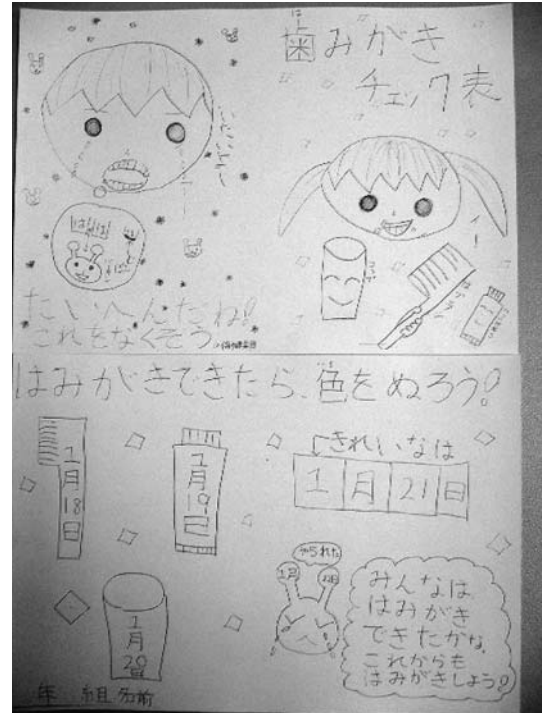 歯みがき
チェック表
は
いたいよー
たいへんだね!
これをなくそう。
イー
コップ
はブラシ
はみがきできたら、色をぬろう!
いろ
1月18日
1月19日
きれいなは
1月21日
1月20日
やられた
1月
22日
みんなは
はみがき
できたかな。
これからも
はみがきしよう!
年 組 名前